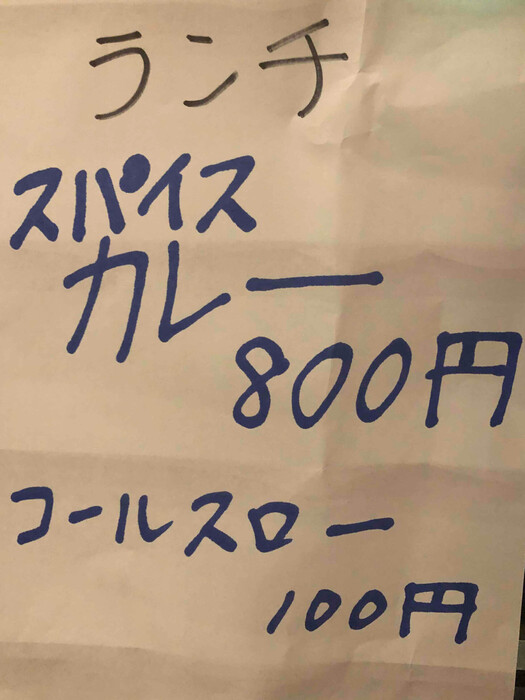 ランチ
スパイス
カレー
800円
コールスロー
100円